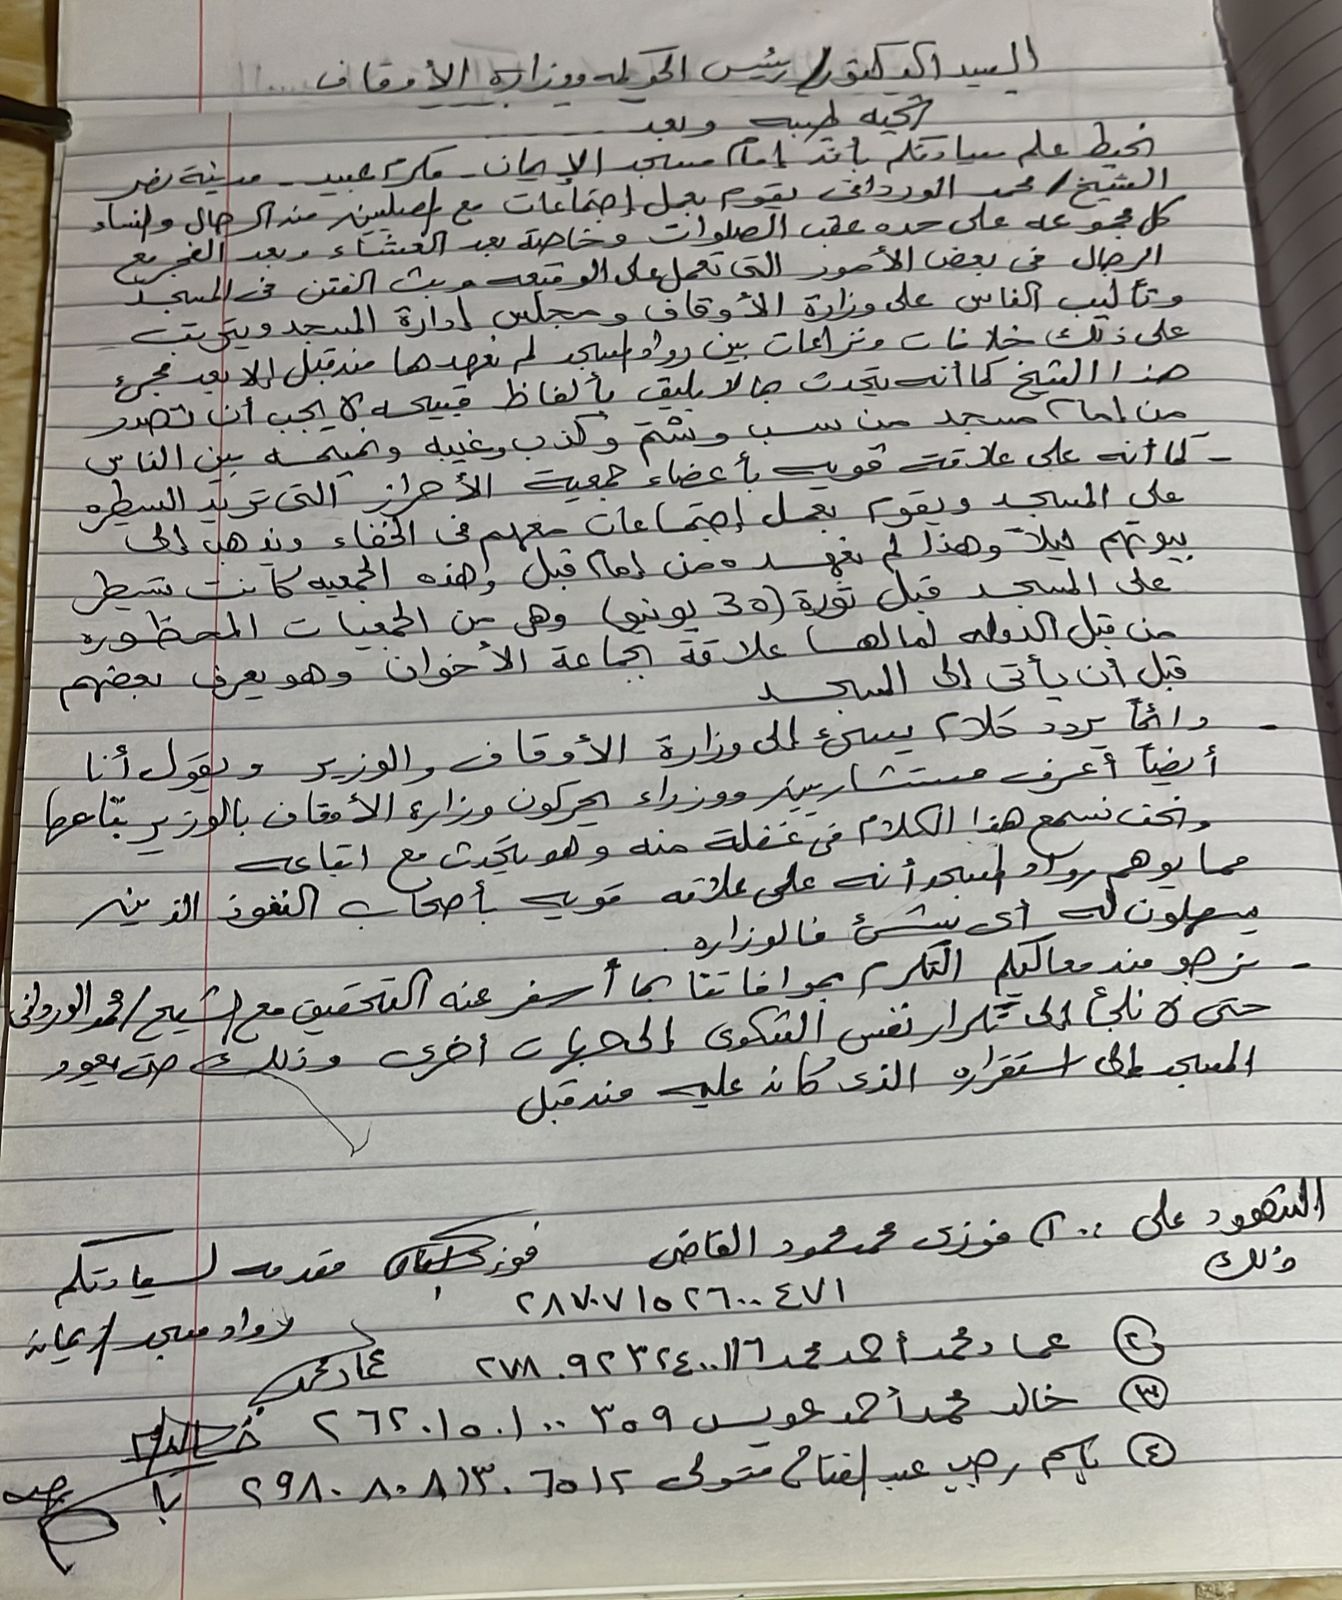 السيد الدكتور/ رئيس الحي له ووزارة الأوقاف
تحيه طيبه وبعد
نحيط علم سيادتكم بأن إمام مسجد الإيمان - مكرم عبيد - مدينة نصر
الشيخ/ محمد الوردانى يقوم بعمل إجتماعات مع المصليين من الرجال والنساء
كل مجموعه على حده عقب الصلوات وخاصة بعد العشاء وبعد الفجر مع
الرجال فى بعض الأمور التى تعمل على الوقيعه وبث الفتن فى المسجد
وتأليب الناس على وزارة الأوقاف ومجلس إدارة المسجد ويترتب
على ذلك خلافات ونزاعات بين رواد المسجد لم نعهدها من قبل إلا بعد مجئ
هذا الشيخ كما أنه يتحدث بما لا يليق بألفاظ قبيحه لا يجب أن تصدر
من إمام مسجد من سب وشتم وكذب وغيبه ونميمه بين الناس
- كما أنه على علاقة قويه بأعضاء جمعية الأحرار التى تريد السيطره
على المسجد ويقوم بعمل إجتماعات معهم فى الخفاء ويذهب إلى
بيوتهم ليلاً وهذا لم نعهده من إمام قبل وهذه الجمعيه كانت تسيطر
على المسجد قبل ثورة (30 يونيو) وهى من الجمعيات المحظوره
من قبل الدوله لما لها علاقة بجماعة الأخوان وهو يعرف بعضهم
قبل أن يأتى إلى المسجد
- دائماً يردد كلام يسئ إلى وزارة الأوقاف والوزير ويقول أنا
أيضاً أعرف مستشاريين ووزراء يحركون وزارة الأوقاف بالوزير بتاعها
ونحن نسمع هذا الكلام فى غفلة منه وهو يتحدث مع اتباعه
مما يوهم رواد المسجد أنه على علاقه قويه بأصحاب النفوذ الذين
يسهلون له أى شئ فالوزاره.
- نرجو من معاليكم التكرم بموافاتنا بما أسفر عنه التحقيق مع الشيخ/ محمد الوردانى
حتى لا نلجأ إلى تكرار نفس الشكوى إلى جهات أخرى وذلك حتى يعود
المسجد إلى استقراره الذى كان عليه من قبل
الشهود على ذلك :. ١) فوزى محمد محمود القاضى فوزى القاضى مقدمه لسيادتكم
٢٨٧٠٧١٥٢٦٠٠٤٧١
رواد مسجد الإيمان
٢ عماد محمد أحمد محمد ٢٧٨٠٩٢٣٢٤٠٠١١٦ عماد محمد
٣ خالد محمد أحمد عويس ٢٦٢٠١٥٠١٠٠٣٥٩ خالد
٤ باسم رجب عبد الفتاح متولى ٢٩٨٠٨٠٨١٣٠٦٥١٢